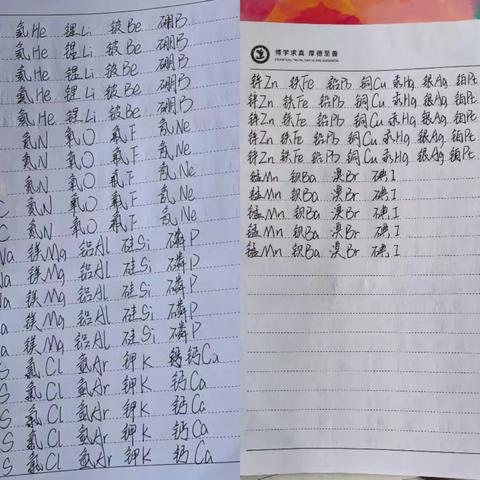 氦He 锂Li 铍Be 硼B
氦He 锂Li 铍Be 硼B
氦He 锂Li 铍Be 硼B
氦He 锂Li 铍Be 硼B
氦He 锂Li 铍Be 硼B
氮N 氧O 氟F 氖Ne
氮N 氧O 氟F 氖Ne
氮N 氧O 氟F 氖Ne
C 氮N 氧O 氟F 氖Ne
C 氮N 氧O 氟F 氖Ne
Na 镁Mg 铝Al 硅Si 磷P
Na 镁Mg 铝Al 硅Si 磷P
Na 镁Mg 铝Al 硅Si 磷P
a 镁Mg 铝Al 硅Si 磷P
a 镁Mg 铝Al 硅Si 磷P
S 氯Cl 氩Ar 钾K 钙Ca
S 氯Cl 氩Ar 钾K 钙Ca
S 氯Cl 氩Ar 钾K 钙Ca
S 氯Cl 氩Ar 钾K 钙Ca
S 氯Cl 氩Ar 钾K 钙Ca
博学求真 厚德至善
锌Zn 铁Fe 铅Pb 铜Cu 汞Hg 银Ag 铂Pt
锌Zn 铁Fe 铅Pb 铜Cu 汞Hg 银Ag 铂Pt
锌Zn 铁Fe 铅Pb 铜Cu 汞Hg 银Ag 铂Pt
锌Zn 铁Fe 铅Pb 铜Cu 汞Hg 银Ag 铂Pt
锌Zn 铁Fe 铅Pb 铜Cu 汞Hg 银Ag 铂Pt
锰Mn 钡Ba 溴Br 碘I
锰Mn 钡Ba 溴Br 碘I
锰Mn 钡Ba 溴Br 碘I
锰Mn 钡Ba 溴Br 碘I
锰Mn 钡Ba 溴Br 碘I